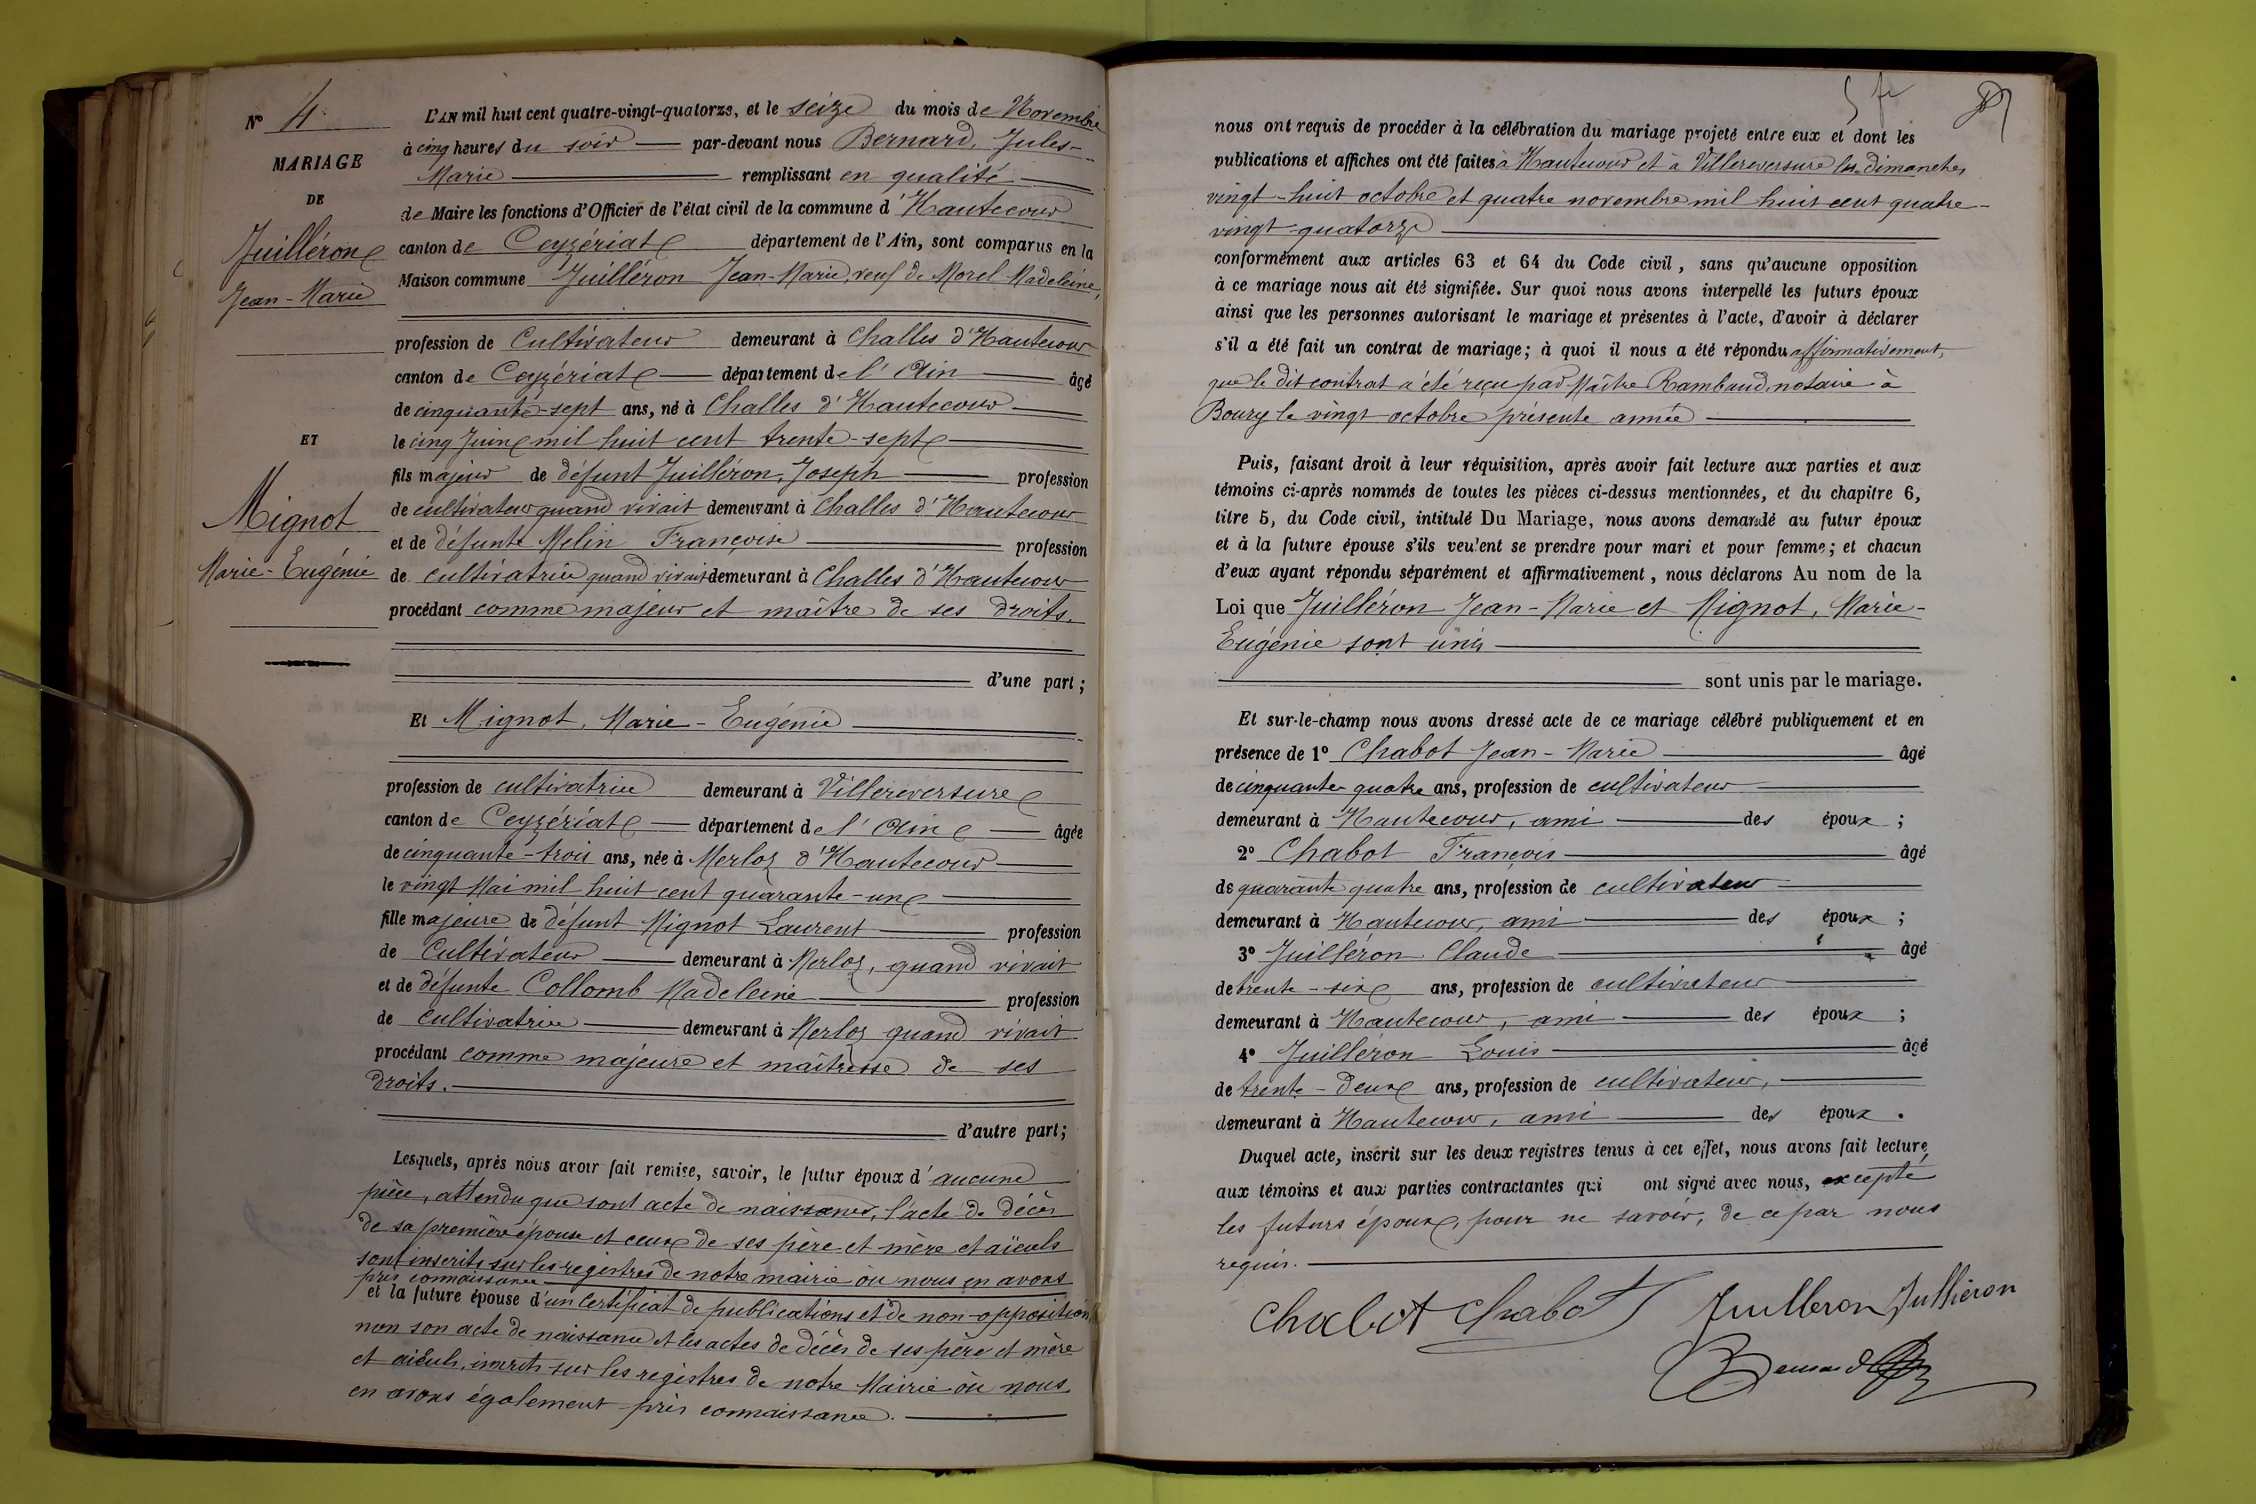 N° 4
MARIAGE
DE
Juilléron
Jean-Marie
ET
Mignot
Marie-Eugénie
L'AN mil huit cent quatre-vingt-quatorze, et le seize du mois de Novembre
à cinq heures du soir par-devant nous Bernard, Jules-
Marie remplissant en qualité
de Maire les fonctions d'Officier de l'état civil de la commune d'Hautecour
canton de Ceyzériat département de l'Ain, sont comparus en la
Maison commune Juilléron Jean-Marie, veuf de Morel Madeleine,
profession de Cultivateur demeurant à Challes d'Hautecour
canton de Ceyzériat département de l'Ain âgé
de cinquante-sept ans, né à Challes d'Hautecour
le cinq Juin mil huit cent trente-sept
fils majeur de défunt Juilléron, Joseph profession
de cultivateur quand vivait demeurant à Challes d'Hautecour
et de défunte Melin Françoise profession
de cultivatrice quand vivait demeurant à Challes d'Hautecour
procédant comme majeur et maître de ses droits.
d'une part ;
Et Mignot, Marie-Eugénie
profession de cultivatrice demeurant à Villereversure
canton de Ceyzériat département de l'Ain âgée
de cinquante-trois ans, née à Merloz d'Hautecour
le vingt Mai mil huit cent quarante-un
fille majeure de défunt Mignot Laurent profession
de Cultivateur demeurant à Merloz, quand vivait
et de défunte Collomb Madeleine profession
de cultivatrice demeurant à Merloz quand vivait
procédant comme majeure et maîtresse de ses
droits.
d'autre part ;
Lesquels, après nous avoir fait remise, savoir, le futur époux d'aucune
pièce, attendu que sont acte de naissance, l'acte de décès
de sa première épouse et ceux de ses père et mère et aïeuls
sont inscrits sur les registres de notre mairie où nous en avons
pris connaissance
et la future épouse d'un certificat de publications et de non-opposition
non son acte de naissance et les actes de décès de ses père et mère
et aïeuls, inscrits sur les registres de notre Mairie où nous
en avons également pris connaissance.
5 fr
nous ont requis de procéder à la célébration du mariage projeté entre eux et dont les
publications et affiches ont été faites à Hautecour et à Villereversure les dimanches
vingt-huit octobre et quatre novembre mil huit cent quatre-
vingt-quatorze
conformément aux articles 63 et 64 du Code civil, sans qu'aucune opposition
à ce mariage nous ait été signifiée. Sur quoi nous avons interpellé les futurs époux
ainsi que les personnes autorisant le mariage et présentes à l'acte, d'avoir à déclarer
s'il a été fait un contrat de mariage ; à quoi il nous a été répondu affirmativement,
que le dit contrat a été reçu par Maître Rambaud, notaire à
Bourg le vingt octobre présente année
Puis, faisant droit à leur réquisition, après avoir fait lecture aux parties et aux
témoins ci-après nommés de toutes les pièces ci-dessus mentionnées, et du chapitre 6,
titre 5, du Code civil, intitulé Du Mariage, nous avons demandé au futur époux
et à la future épouse s'ils veulent se prendre pour mari et pour femme ; et chacun
d'eux ayant répondu séparément et affirmativement, nous déclarons Au nom de la
Loi que Juilléron Jean-Marie et Mignot, Marie-
Eugénie sont unis
sont unis par le mariage.
Et sur-le-champ nous avons dressé acte de ce mariage célébré publiquement et en
présence de 1° Chabot Jean-Marie âgé
de cinquante-quatre ans, profession de cultivateur
demeurant à Hautecour, ami des époux ;
2° Chabot François âgé
de quarante quatre ans, profession de cultivateur
demeurant à Hautecour, ami des époux ;
3° Juilléron Claude âgé
de trente-six ans, profession de cultivateur
demeurant à Hautecour, ami des époux ;
4° Juilléron Louis âgé
de trente-deux ans, profession de cultivateur,
demeurant à Hautecour, ami des époux.
Duquel acte, inscrit sur les deux registres tenus à cet effet, nous avons fait lecture
aux témoins et aux parties contractantes qui ont signé avec nous, excepté
les futurs époux, pour ne savoir, de ce par nous
requis.
Chabot Chabot Juilleron Jullieron
Bernard